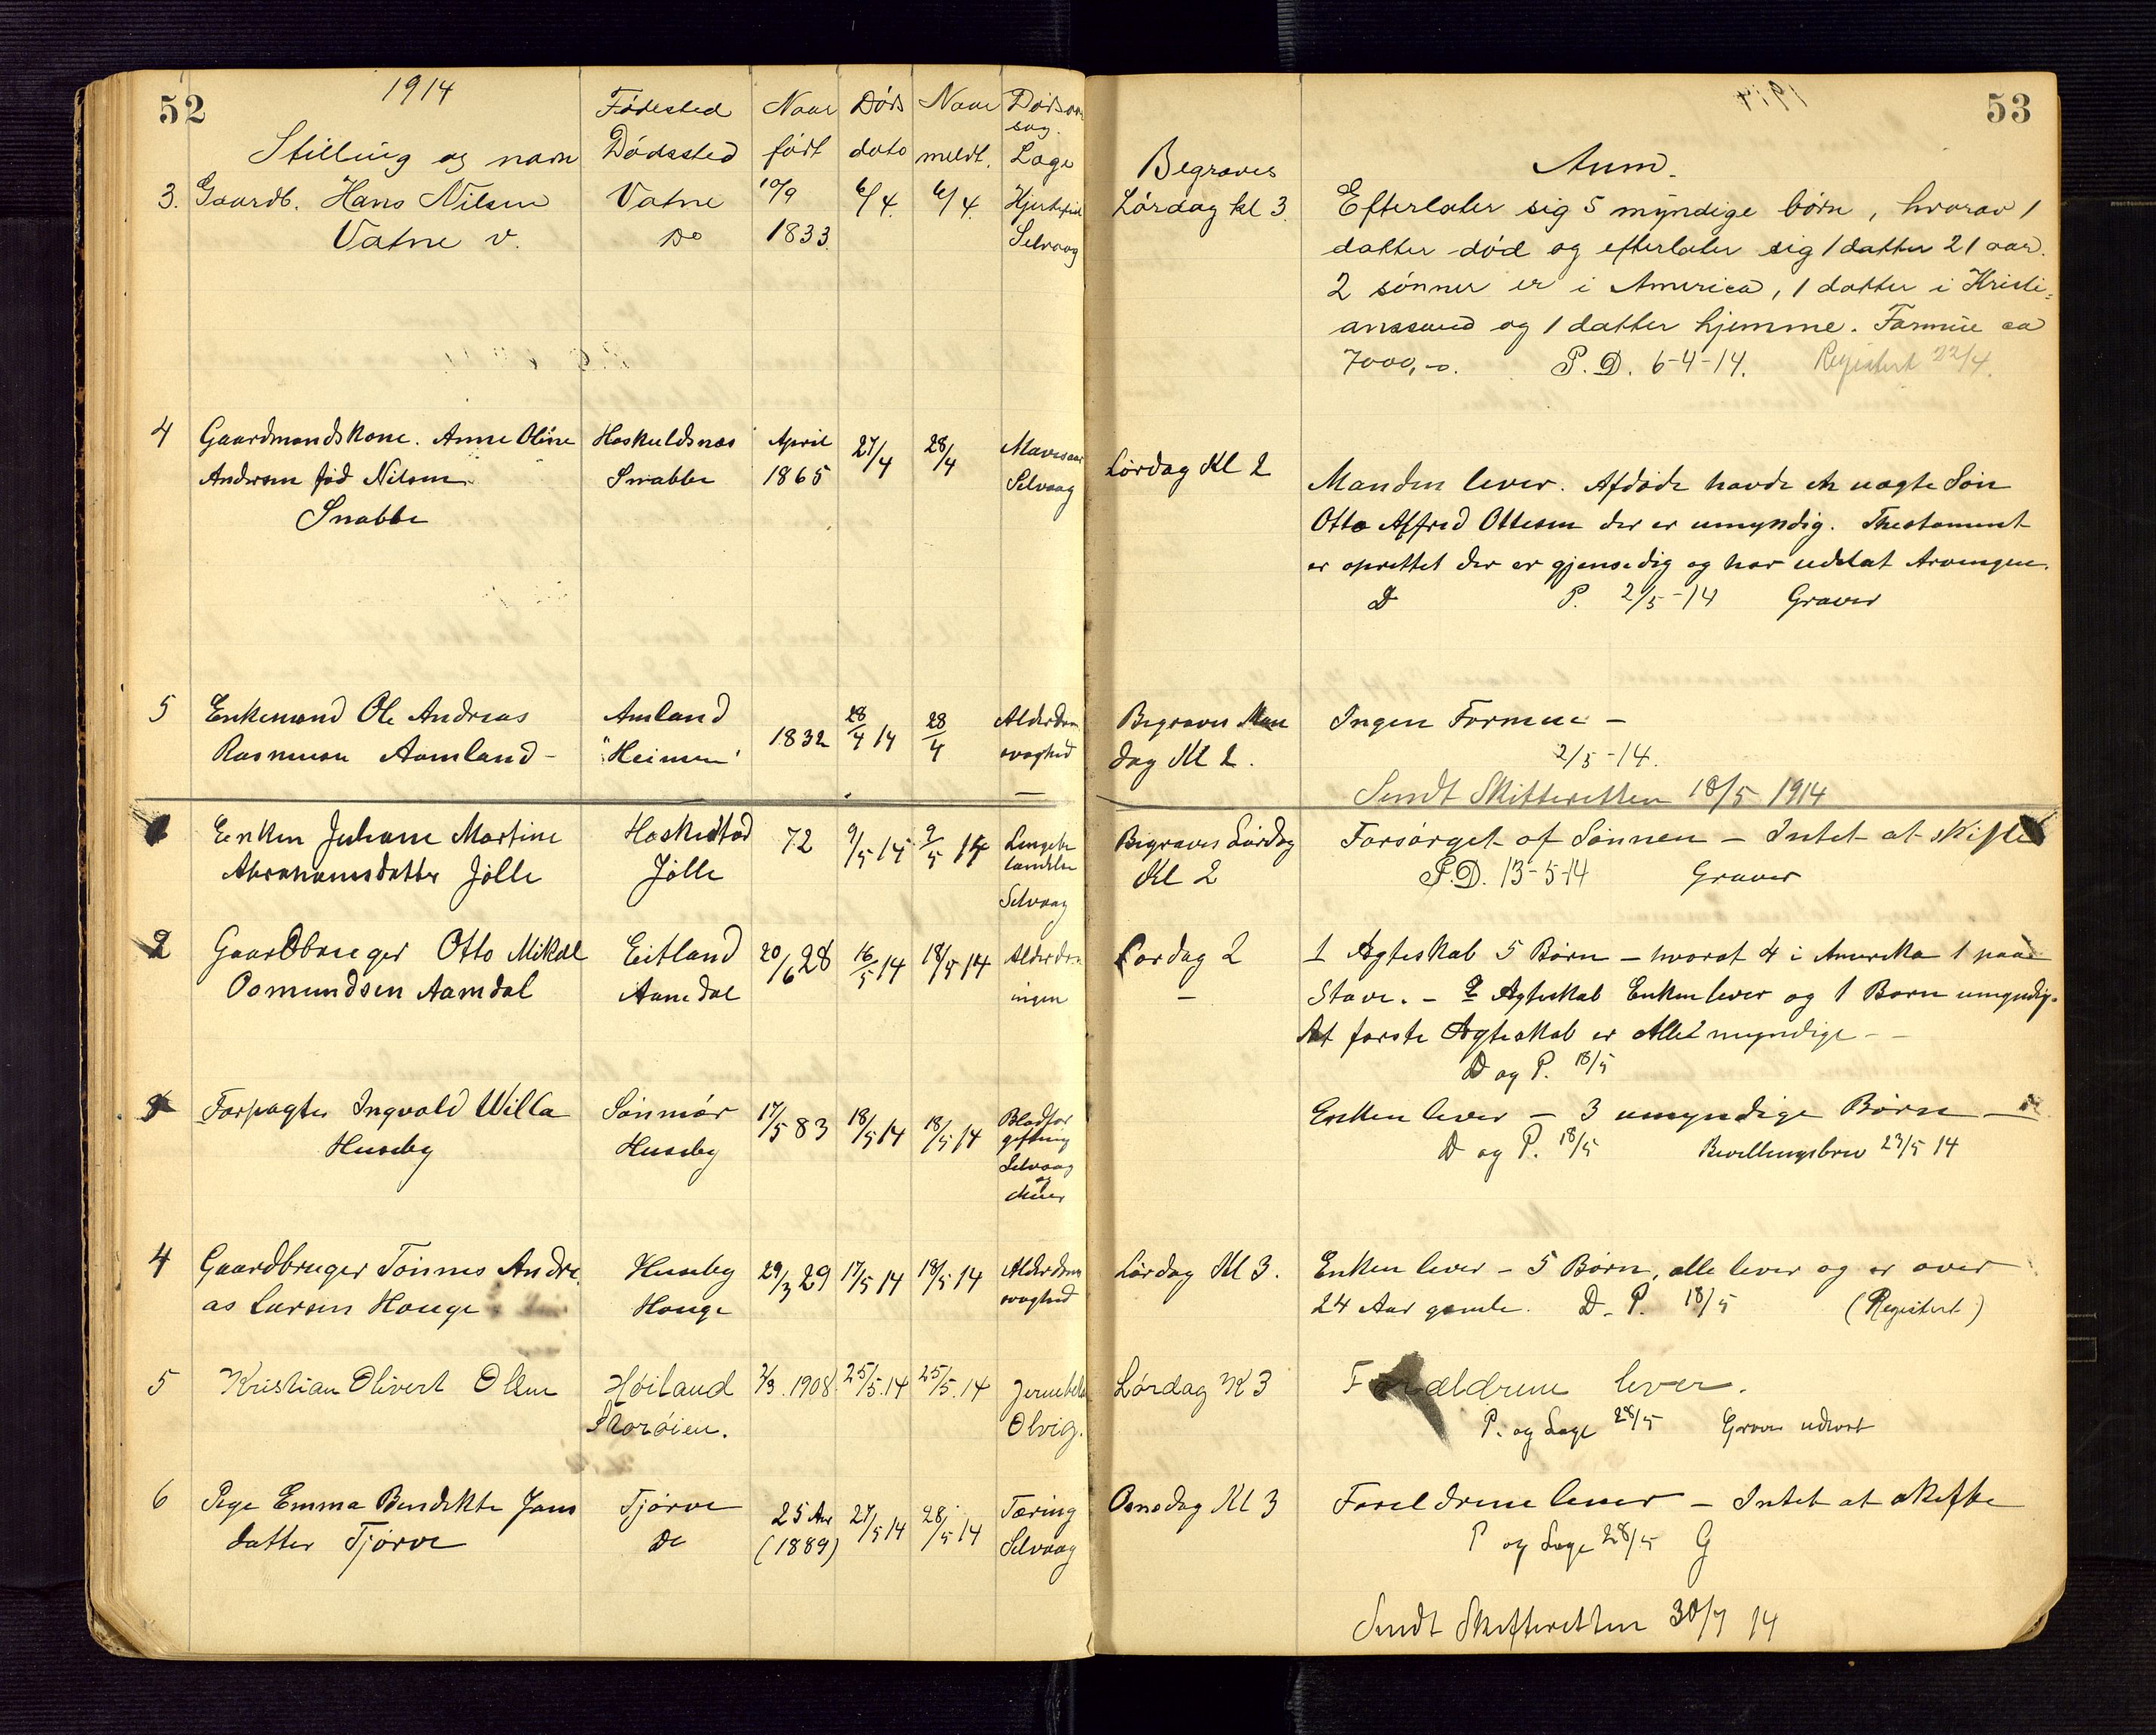 52
1914
Stilling og navn
Fødested
Dødssted
Naar
født
Døds
dato
Naar
meldt.
Dødsaar
sag.
Læge
3. Gaardb. Hans Nilsen
Vatne v.
Vatne
Do
10/9
1833.
6/4.
6/4.
Selvaag
4 Gaardmandskone. Anne Oline
Andersen fød Nilsen.
Snabbe
Haskuldsnæs
Snabbe
April
1865
27/4
28/4
Selvaag
5 Enkemand Ole Andreas
Rasmusen Aamland -
Amland
"Heimen"
1832
28/4 14
28/4
Alderdom
svaghed
Enken Juliane Martine
Abrahamsdatter Jølle
Jølle
72
9/5 14
9/5 14
Selvaag
2 Gaardbruger Otto Mikal
Osmundsen Aamdal
Eitland
Aamdal
20/6 28
16/5 14
18/5 14
Alderdom
ingen
3 Forpagter Ingvald Willa
Huseby
Sønmør
Huseby
17/5 83
18/5 14
18/5 14
Blodfor
giftning
Selvaag
og
4 Gaardbruger Tønnes Andre
as Larsen Hauge
Huseby
Hauge
29/3 29
17/5 14
18/5 14
Alderdoms
svaghed
5 Kristian Olivert Olsen
Høiland
Skorøien.
2/3. 1908
25/5. 14
25/5. 14
Olvig.
6 Pige Emma Bendikte Jans
datter Tjørve
Tjørve
Do
25 Aar
(1889)
27/5 14
28/5 14
Tæring
Selvaag
53
1914
Begraves
Anm.
Lørdag kl 3.
Efterlater sig 5 myndige børn, hvorav 1
datter død og efterlater sig 1 datter 21 aar.
2 sønner er i America, 1 datter i Kristi=
anssand og 1 datter hjemme. Formue ca
7000,-. P. D. 6-4-14. Registert 22/4.
Lørdag Kl 2
Manden lever. Afdøde havde en uægte Søn
Otto Alfred Ottesen der er umyndig. Thestament
er oprettet der er gjensidig og har udelat Arvingen.
D P. 2/5-14 Graver
Begraves Man
dag Kl 2.
Ingen Formue -
2/5-14.
Sendt Skifteretten 18/5 1914
Begraves Lørdag
Kl 2
Forsørget af Sønnen - Intet at skifte
P.D. 13-5-14 Graver
Lørdag 2
-
1 Ægteskab 5 Børn - hvoraf 4 i Amerika 1 paa
Stave. - 2 Ægteskab Enken lever og 1 Barn umyndig.
Af første Ægteskab er Alle myndige -
D og P. 18/5
Enken lever - 3 umyndige Børn -
D og P. 18/5 Bevillingsbrev 23/5 14
Lørdag Kl 3.
Enken lever - 5 Børn, alle lever og er over
24 Aar gamle. D. P. 18/5 (Registert)
Lørdag Kl 3
Forældrene lever.
P. og Læge 28/5 Graver
Onsdag Kl 3
Foreldrene lever - Intet at skifte
P og Læge 28/5 G
Sendt Skifteretten 30/7 14